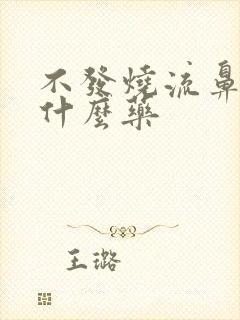 不發燒流鼻
什麼藥
王璐